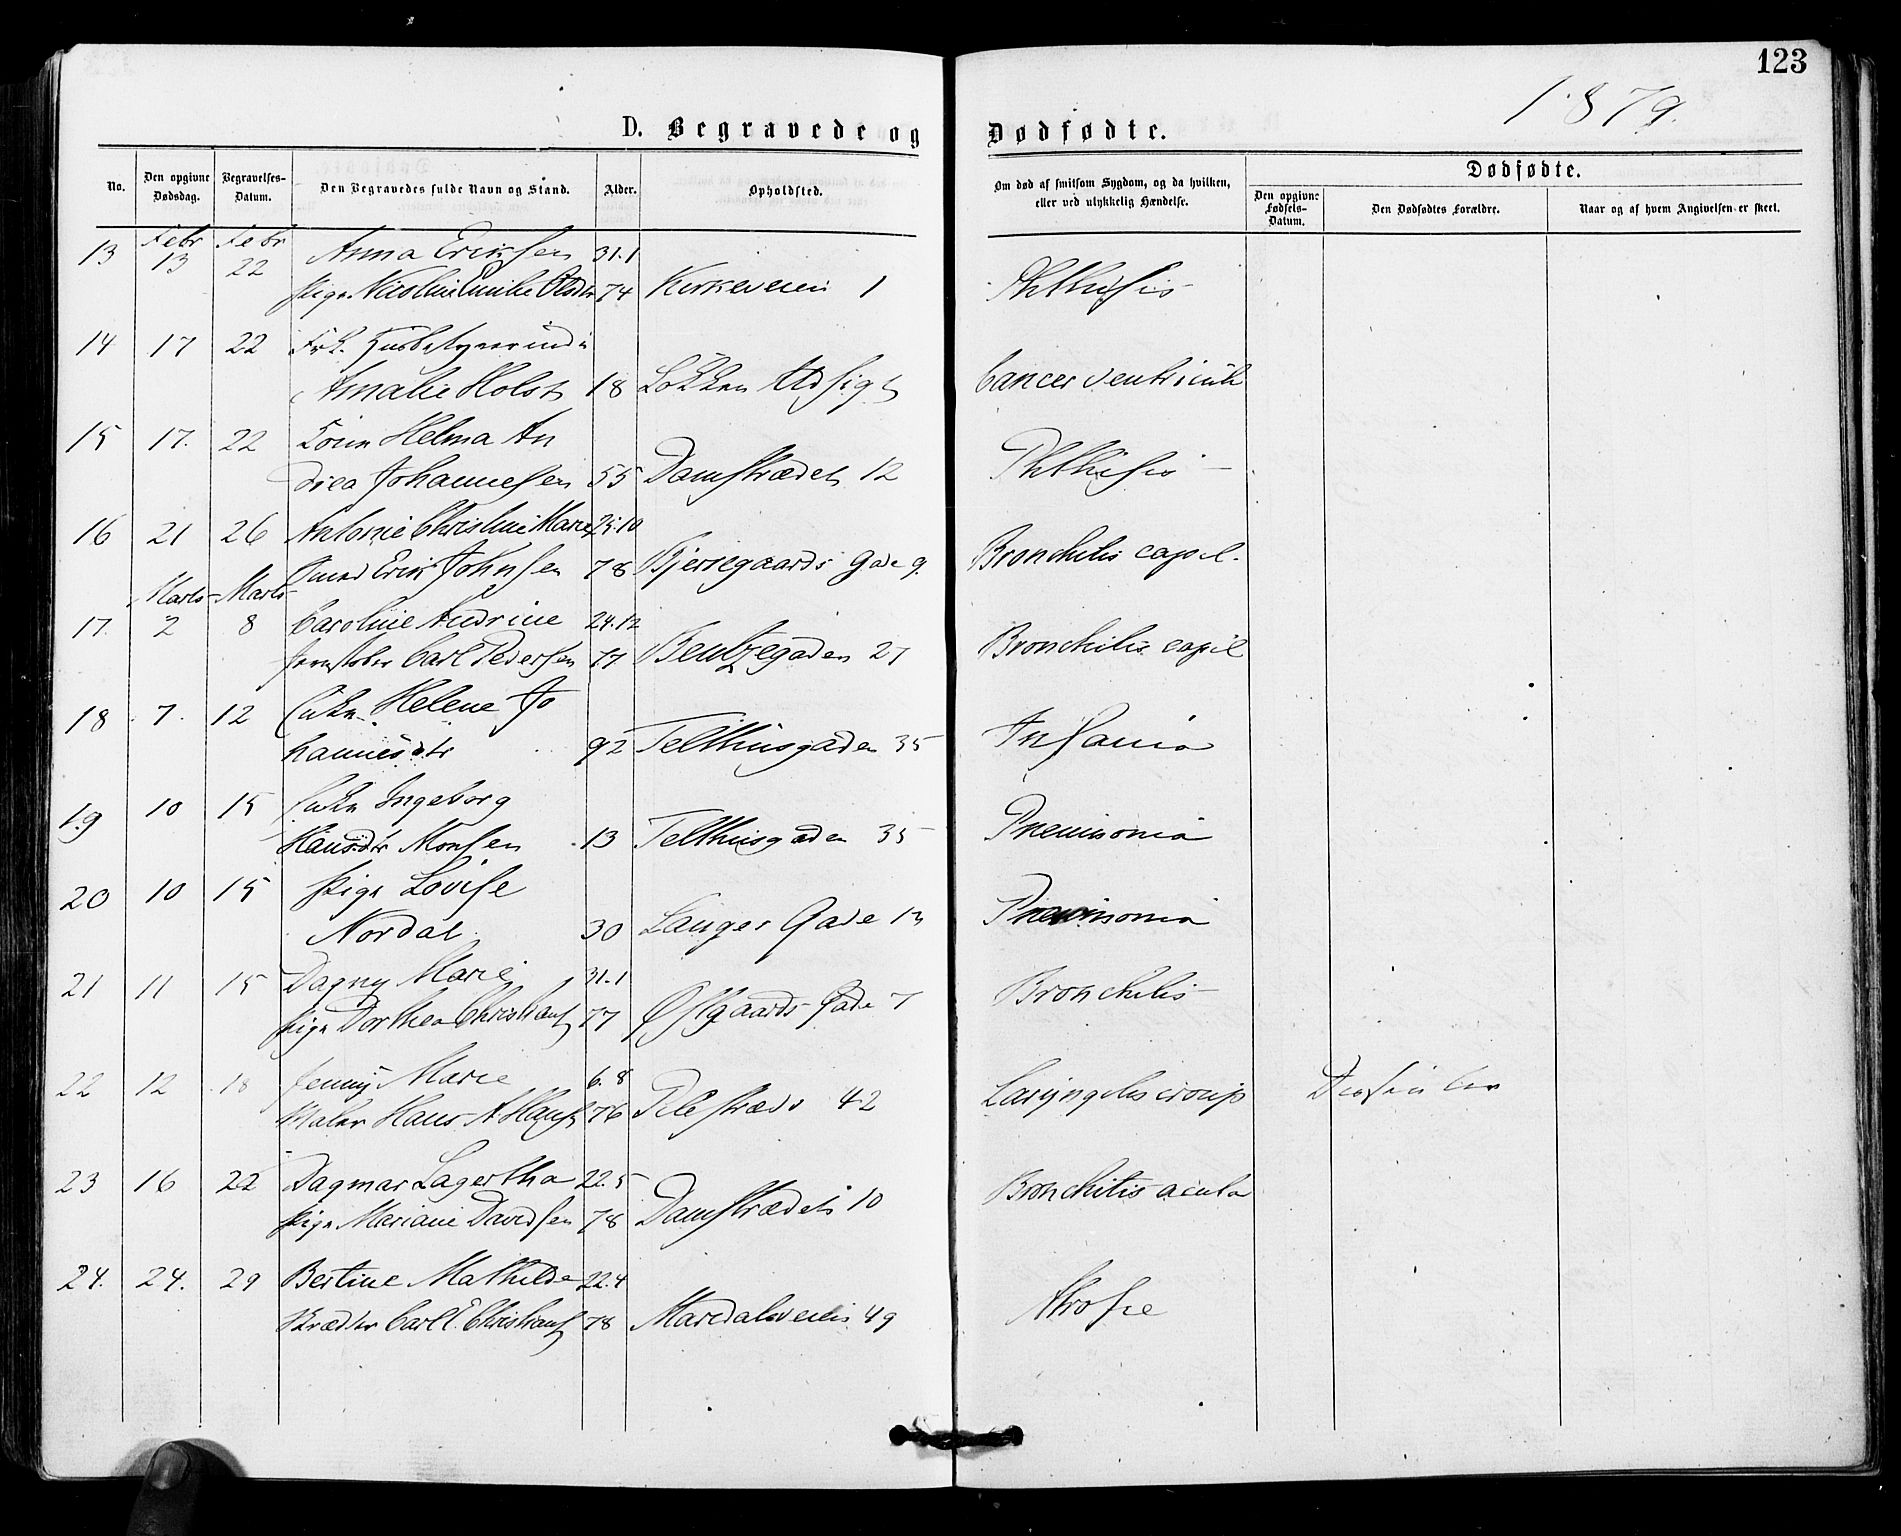 123
1879.
D. Begravede og Dødfødte.
No. Den opgivne Dødsdag. Begravelses-Datum. Den Begravedes fulde Navn og Stand. Alder. Opholdsted. Om død af smitsom Sygdom, og da hvilken, eller ved ulykkelig Hændelse. Dødfødte.
Den opgivne Fødsels-Datum. Den Dødfødtes Forældre. Naar og af hvem Angivelsen er skeet.
13 Febr 13 Febr 22 Anna Eriksen 31.1
Pige Nicoline Emilie Olsdtr 74 Kirkeveien 1 Phthisis
14 17 22 Frk.
Amalie Holst 18 Løkken Udsigt Cancer ventriculi
15 17. 22 Helma An
drea Johannesen 55 Damstrædet 12 Phthisis
16 21 26 Antonie Christine Marie 25.10
Smed Erik Johnsen 78 Bjerregaards Gade 9. Bronchitis capil.
Marts Marts
17. 2 8 Caroline Andrine 24.12
Carl Pedersen 77 Bentzegaden 27 Bronchitis capil
18 7. 12 Enke Helene Jo
hannesdtr 92 Telthusgaden 35 Insania
19 10 15 Enke Ingeborg
Hansdtr Monsen 13 Telthusgaden 35 Pneumonia
20 10 15 Pige Lovise
Nordal 30 Langes Gade 13 Pneumonia
21 11 15 Dagny Marie 31.1
Pige Dorthea Christians 77 Østgaards Gade 7 Bronchitis
22 12 18 Jenny Marie 6.8
Maler Hans A Hans 76 Pilestræde 42 Laryngitis croup
23 16 22 Dagmar Lagertha 22.5
Pige Mariane Davidsen 78 Damstrædet 10 Bronchitis acuta
24. 24. 29 Bertine Mathilde 22.4
Skrædder Carl E. Christians 78 Maridalsveien 49 Atrofie